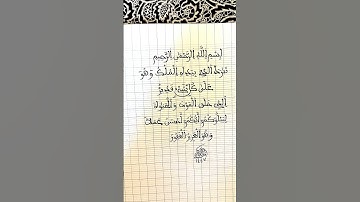 بسم الله الرحمن الرحيم
تبرك الذي بيده الملك وهو
على كل شيء قدير
الذي خلق الموت والحيوة
ليبلوكم أيكم أحسن عملا
وهو العزيز الغفور